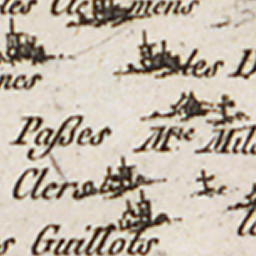 les Cle mens
nes les
Paßes Mte Mil
Clers
s Guillots